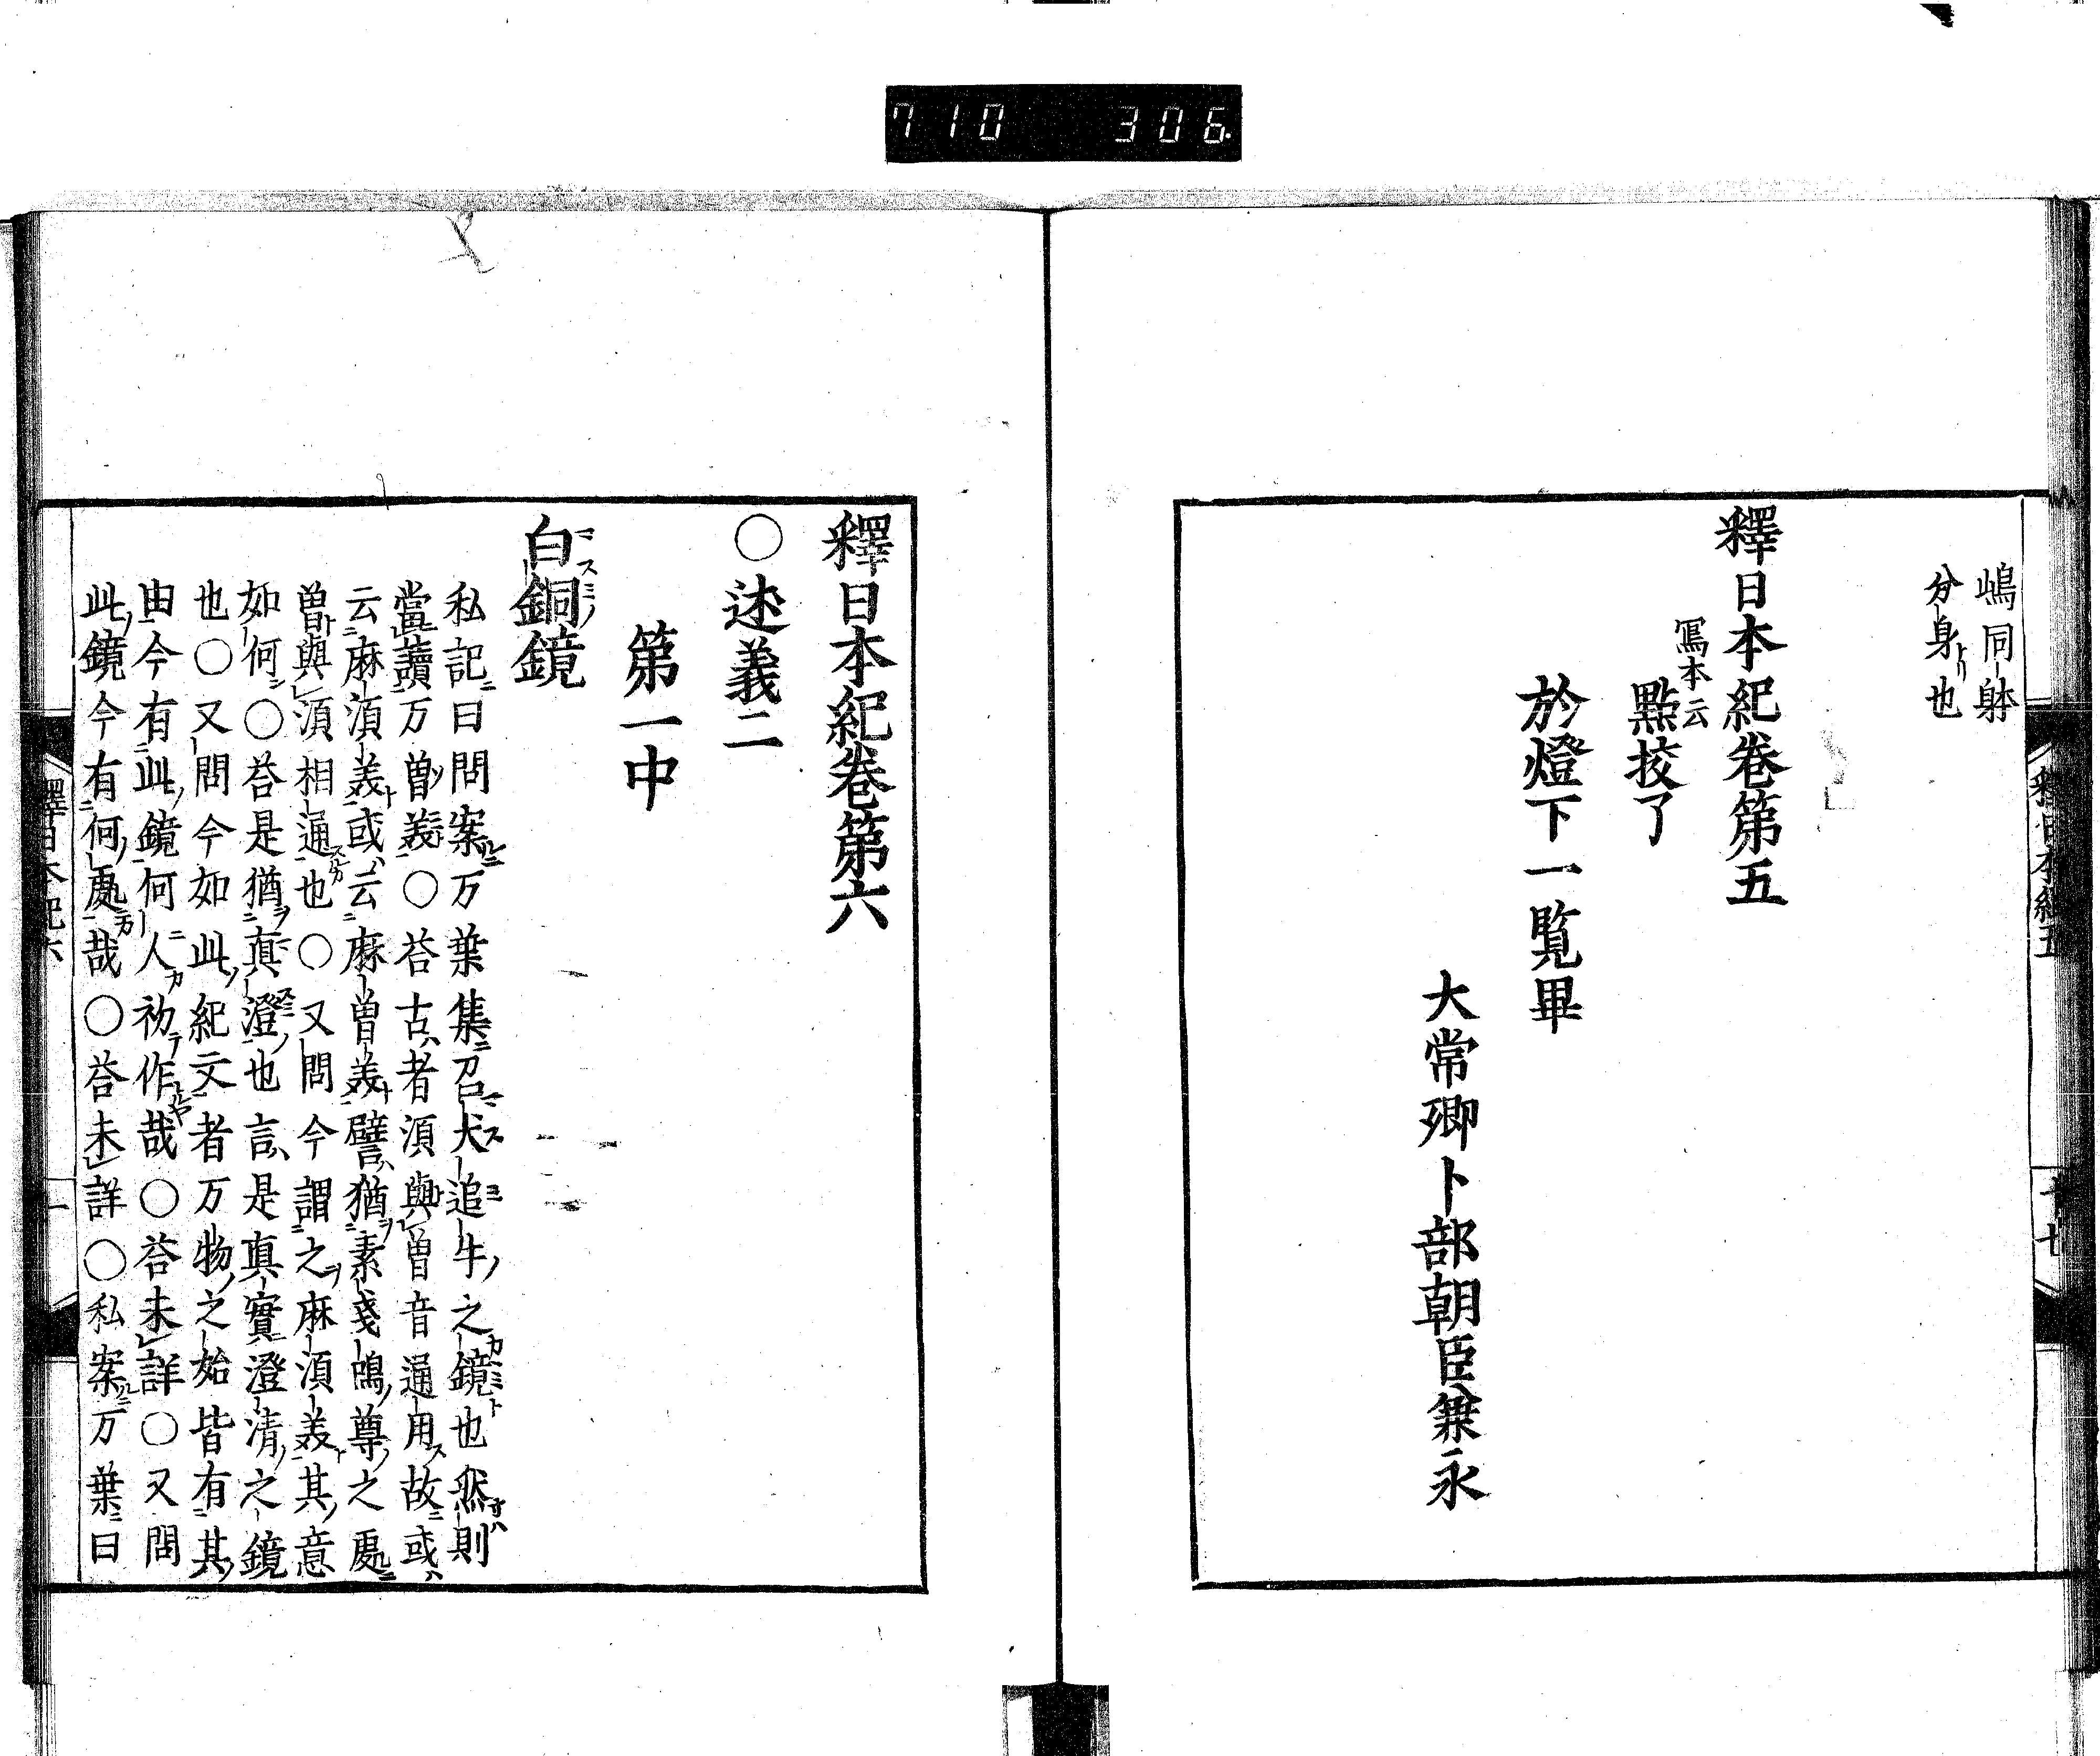 710 306
嶋同躰
分身也
釋日本紀卷第五
寫本云
點挍了
於燈下一覧畢
大常卿卜部朝臣兼永
釋日本紀五
釋日本紀卷第六
○述義二
第一中
白銅鏡
マスミノ
私記曰問案万葉集召犬追牛之鏡也然則
當讀万曽義○荅古者須與曽音通用故或
云麻須義或云麻曽義譬猶素戔嗚尊之處
曽與須相通也○又問今謂之麻須義其意
如何○荅是猶真澄也言是真實澄清之鏡
也○又問今如此紀文者万物之始皆有其
由今有此鏡何人初作哉○荅未詳○又問
此鏡今有何處哉○荅未詳○私案万葉曰
釋日本紀六
一